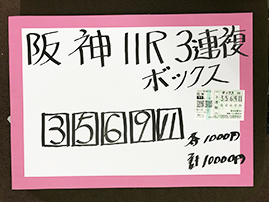 阪神11R 3連複
ボックス
3 5 6 9 11
各1000円
計10000円